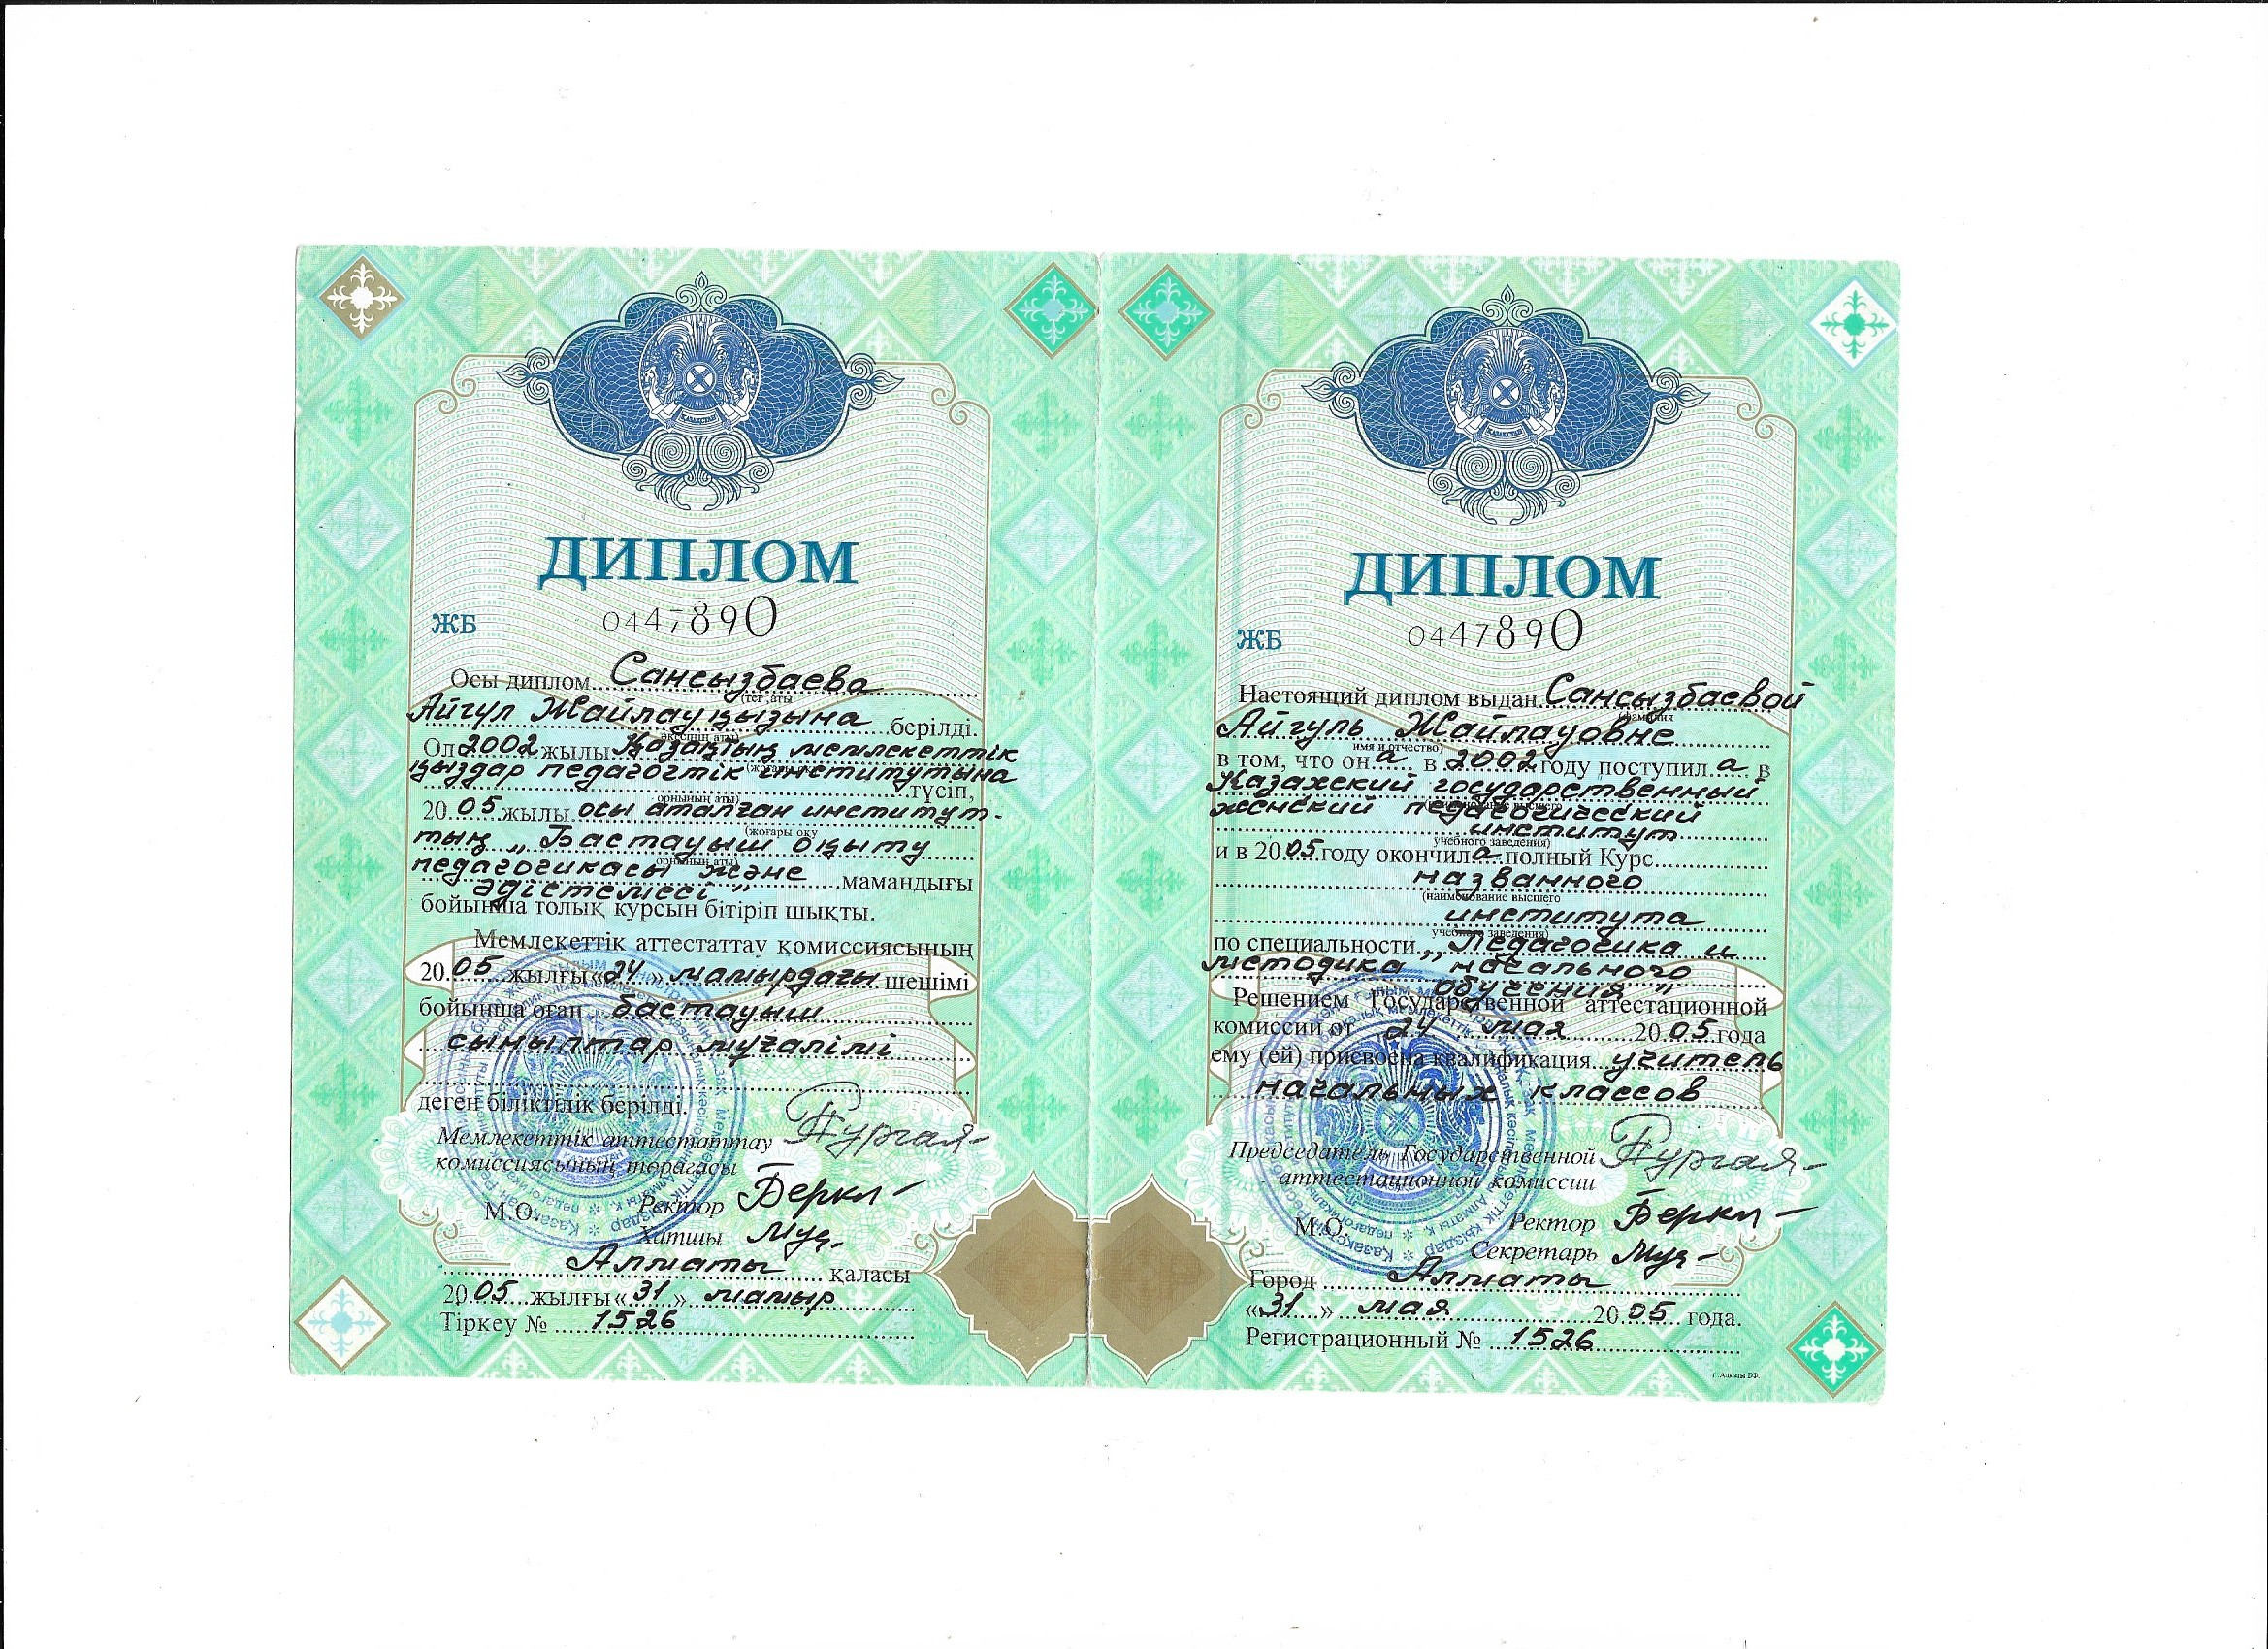 ҚАЗАҚСТАН
ДИПЛОМ
ЖБ 0447890
Осы диплом Сансызбаева
(тегі, аты
Айгүл Жайлауқызына берілді.
әкесінің аты)
Ол 2002 жылы Қазақтың мемлекеттік
(жоғары оқу
қыздар педагогтік институтына
түсіп,
орнының аты)
2005 жылы осы аталған институт-
(жоғары оқу
тың „Бастауыш оқыту
орнының аты)
педагогикасы және мамандығы
әдістемесі"
бойынша толық курсын бітіріп шықты.
Мемлекеттік аттестаттау комиссиясының
2005 жылғы «24» мамырдағы шешімі
бойынша оған бастауыш
сыныптар мұғалімі
деген біліктілік берілді.
Мемлекеттік аттестаттау
комиссиясының төрағасы
М.О. Ректор
Хатшы
Алматы қаласы
2005 жылғы «31» мамыр
Тіркеу № 1526
ҚАЗАҚСТАН
ДИПЛОМ
ЖБ 0447890
Настоящий диплом выдан Сансызбаевой
(фамилия
Айгуль Жайлауовне
имя и отчество)
в том, что она в 2002 году поступила в
Казахский государственный
женский педагогический
(наименование высшего
институт
учебного заведения)
и в 2005 году окончила полный Курс
названного
(наименование высшего
института
учебного заведения)
по специальности „Педагогика и
методика начального
обучения"
Решением Государственной аттестационной
комиссии от 24 мая 2005 года
ему (ей) присвоена квалификация учитель
начальных классов
Председатель Государственной
аттестационной комиссии
М.О. Ректор
Секретарь
Город Алматы
«31» мая 2005 года.
Регистрационный № 1526